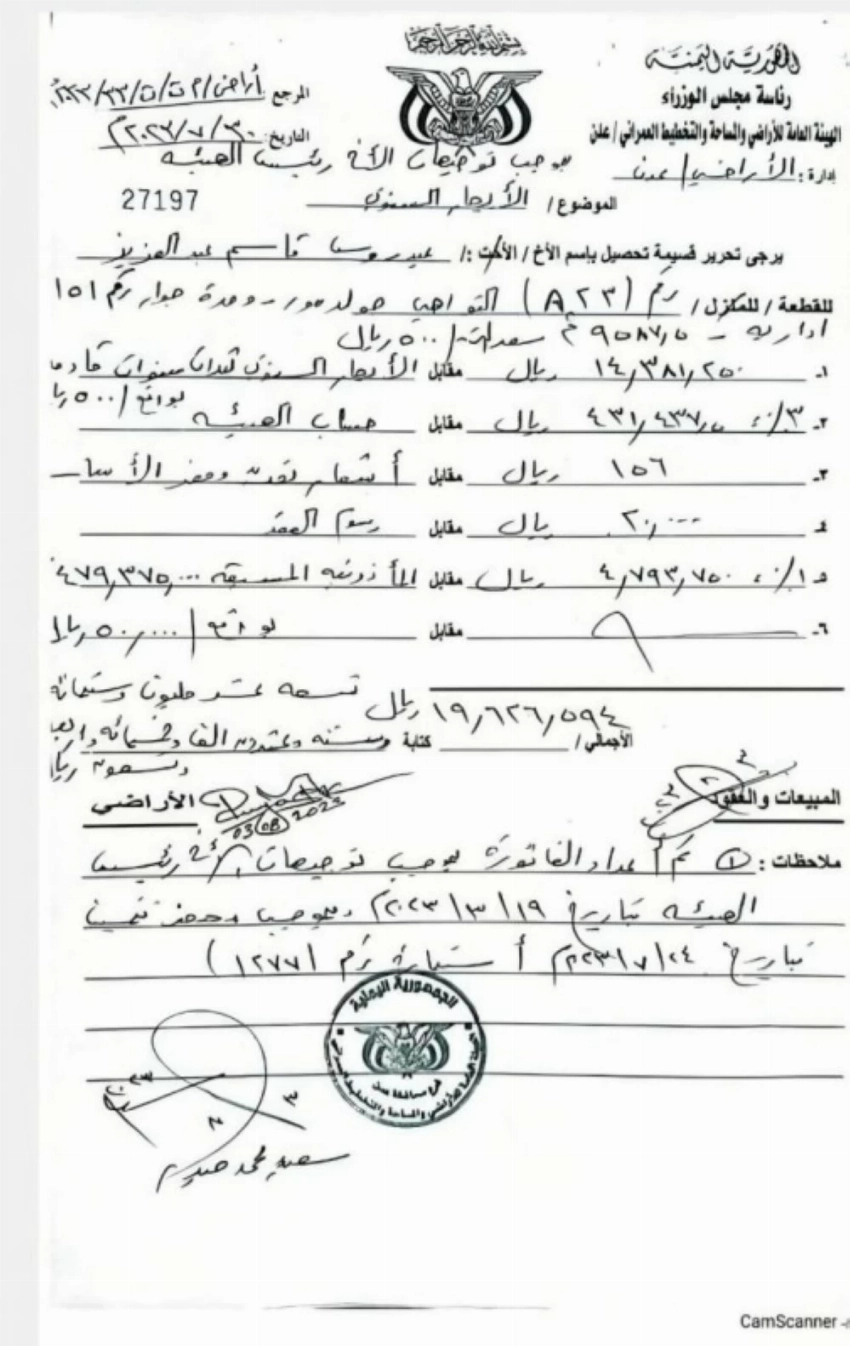 بسم الله الرحمن الرحيم
الجمهورية اليمنية
رئاسة مجلس الوزراء
الهيئة العامة للأراضي والمساحة والتخطيط العمراني / عدن
إدارة : الأراضي / عدن
المرجع أراضي/م ت/ن/٣٣/٢٠٢٣م
التاريخ: ٣٠/٧/٢٠٢٣م
بموجب توجيهات الأخ رئيس الهيئة
الموضوع / الأيجار السنوي
27197
يرجى تحرير قسيمة تحصيل بإسم الأخ / الأخت :/ عيدروس قاسم عبدالعزيز
للقطعة / للمنزل / رقم (A٢٣) التواهي جولدمور - وحدة جوار رقم ١٥١
ادارية - ٩٥٨٧,٥ م٢ ٥٠٠ ريال
١- ١٤,٣٨١,٢٥٠ ريال مقابل الأيجار السنوي لثلاث سنوات قادمة
بواقع / ٥٠٠ ريال
٢- ٣٪ ٤٣١,٤٣٧,٥ ريال مقابل حساب الهيئة
٣- ١٥٦ ريال مقابل أشعار تقدير وحفر الأساس
٤- ٢٠,٠٠٠ ريال مقابل رسوم العقد
٥- ١٪ ٤,٧٩٣,٧٥٠ ريال مقابل المأذونية المسبقة ٤٧٩,٣٧٥,٠٠٠
٦- مقابل بواقع / ٥٠,٠٠٠ ريال
الأجمالي / ١٩,٦٢٦,٥٩٤ ريال كتابة تسعة عشر مليون وستمائة
وستة وعشرون الفا وخمسمائة واربعة
وتسعون ريال
المبيعات والعقود
الأراضي
03/08/2023
ملاحظات : ① تم أعداد الفاتورة بموجب توجيهات أ/ رئيس
الهيئة بتاريخ ١٩/٣/٢٠٢٣م وبموجب محضر تثمين
بتاريخ ٢٤/٧/٢٠٢٣م أستمارة رقم (١٢٧٧)
الجمهورية اليمنية
الهيئة العامة للأراضي والمساحة والتخطيط العمراني
فرع محافظة عدن
CamScanner